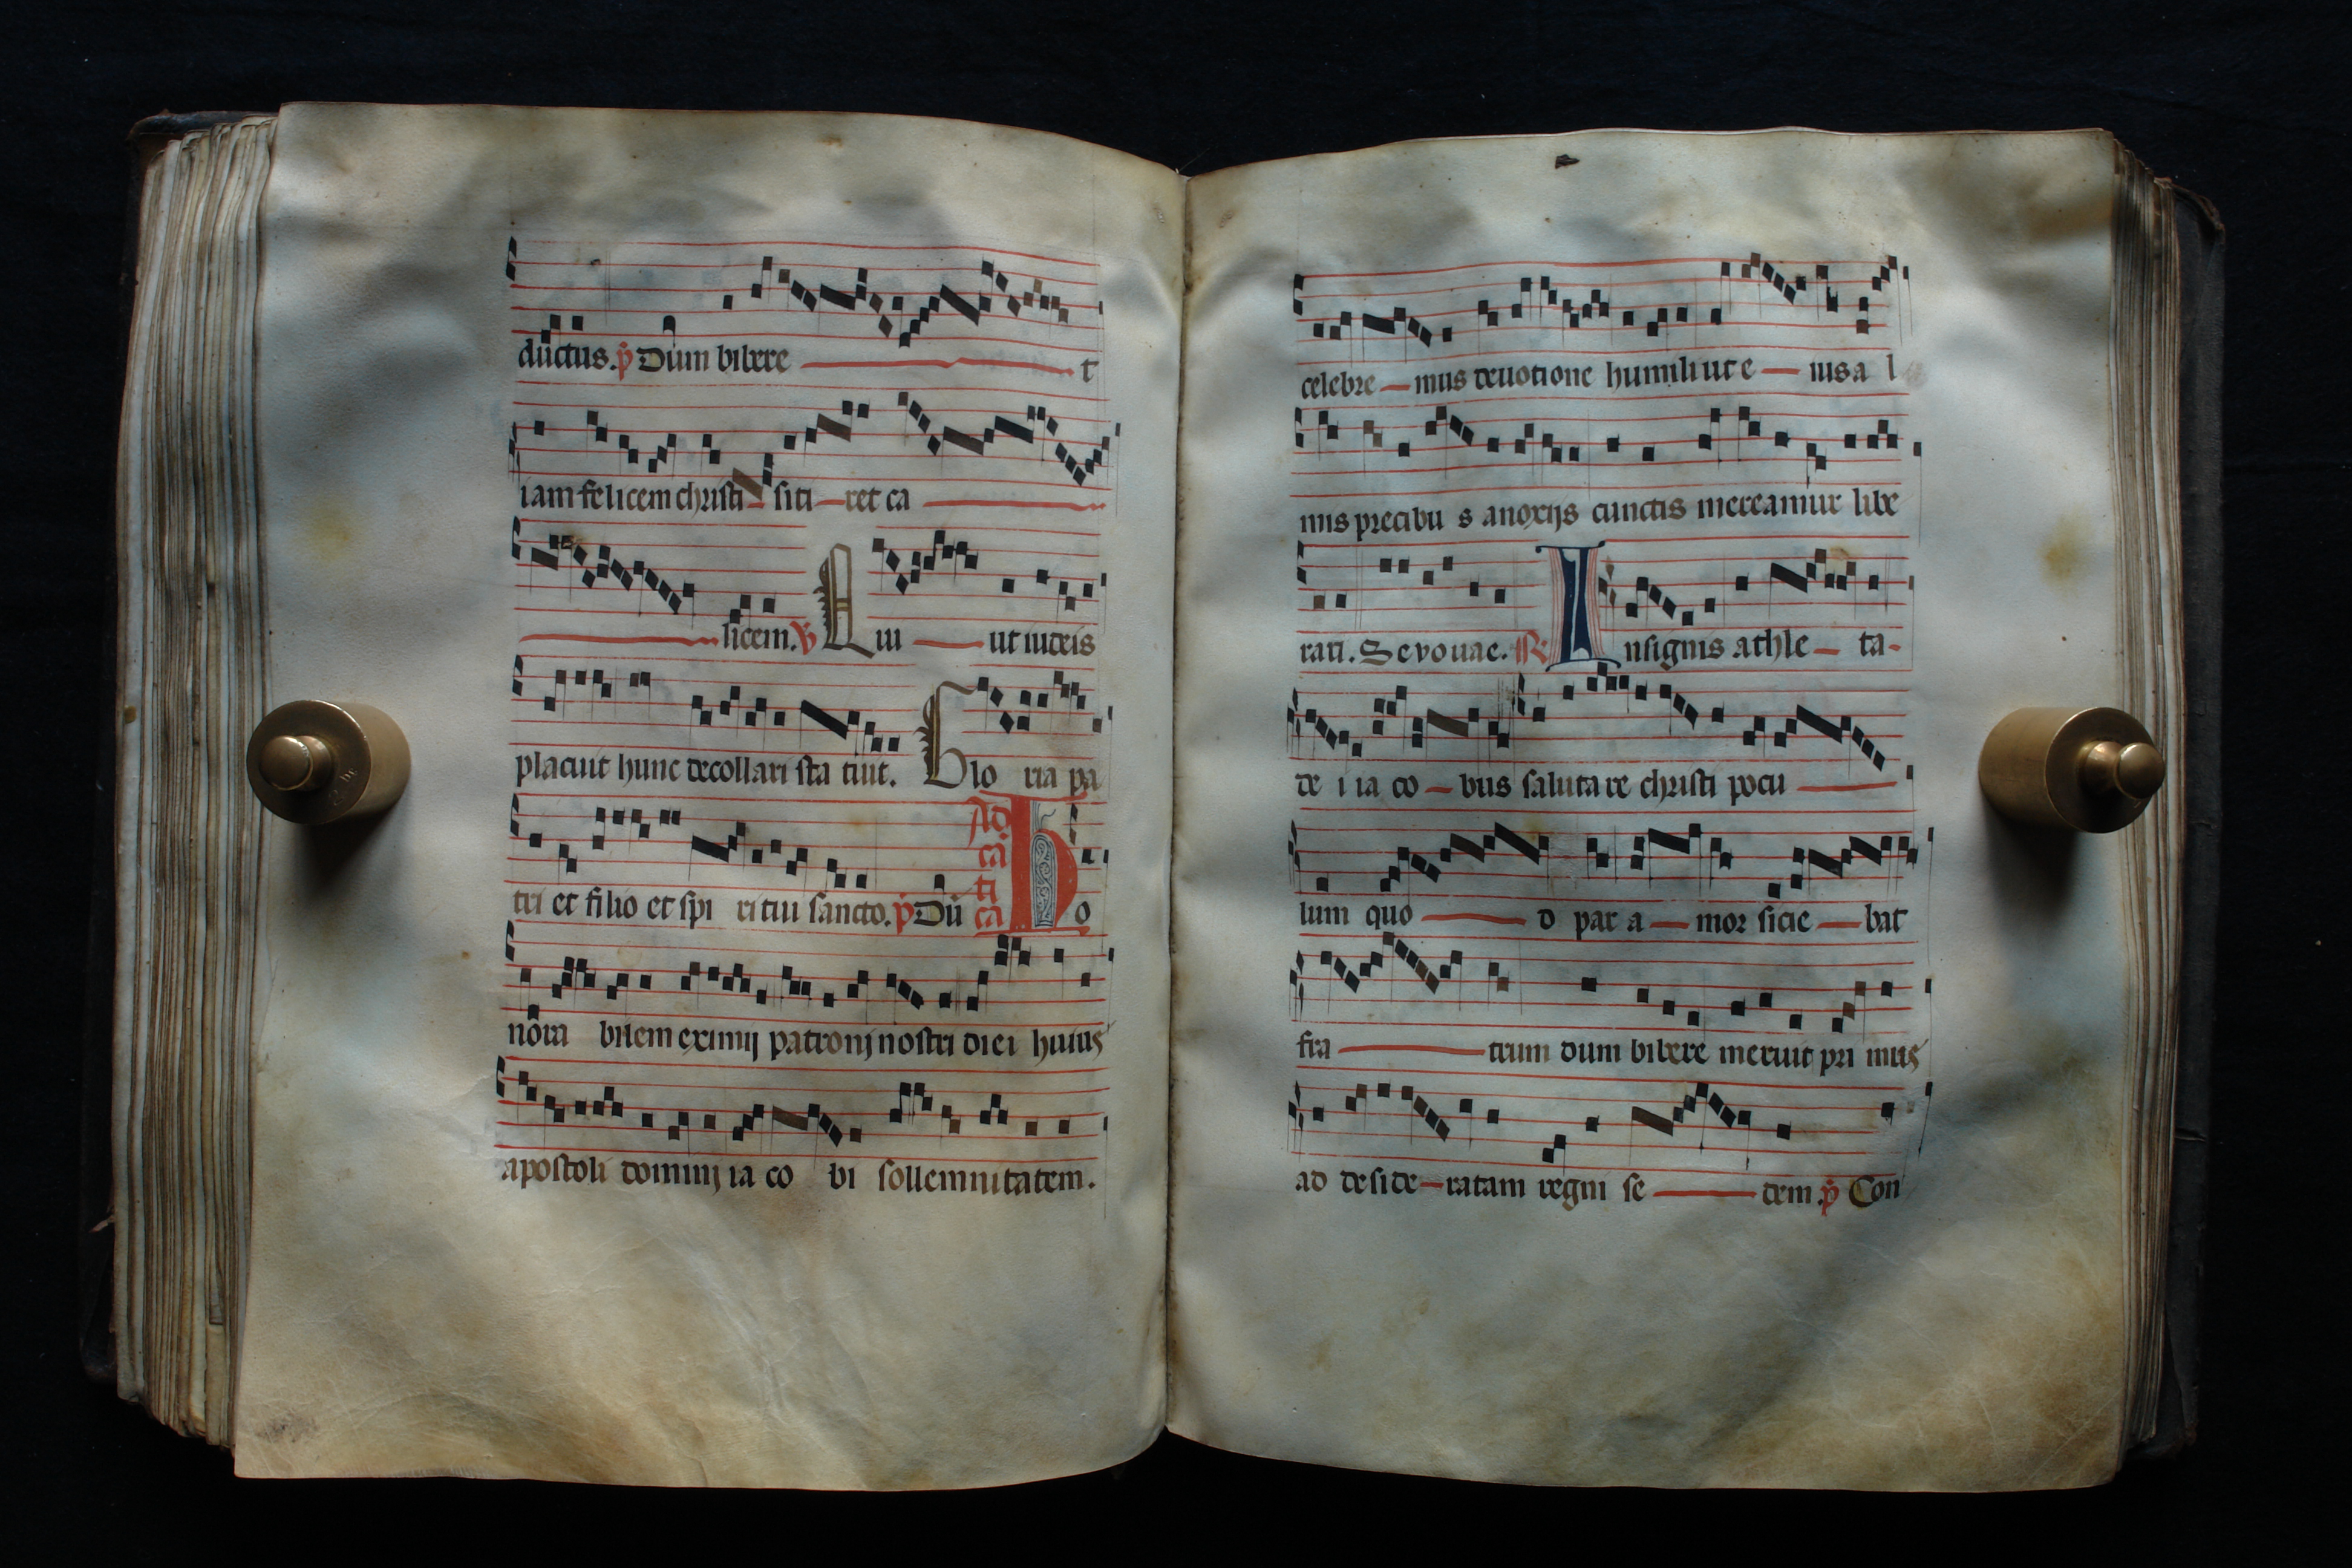 ductus. p̄ Dum bibere t
iam felicem christi siti ret ca
licem. V Qui ut iudeis
placuit hunc decollari sta tuit. Glo ria pa
tri et filio et spi ri tui sancto. p̄ Dū Ad cā ti cā Ho
nora bilem eximij patronj nostri diei huius
apostoli dominj ia co bi sollemnitatem.
celebre mus deuotione humili ut e iusa l
mis precibu s anoxijs cunctis mereamur libe
rari. Sevouae. R Insignis athle ta
de i ia co bus saluta re christi pocu
lum quo d par a mor sicie bat
fra trum dum bibere meruit pri mus
ad deside ratam regni se dem. p̄ Con